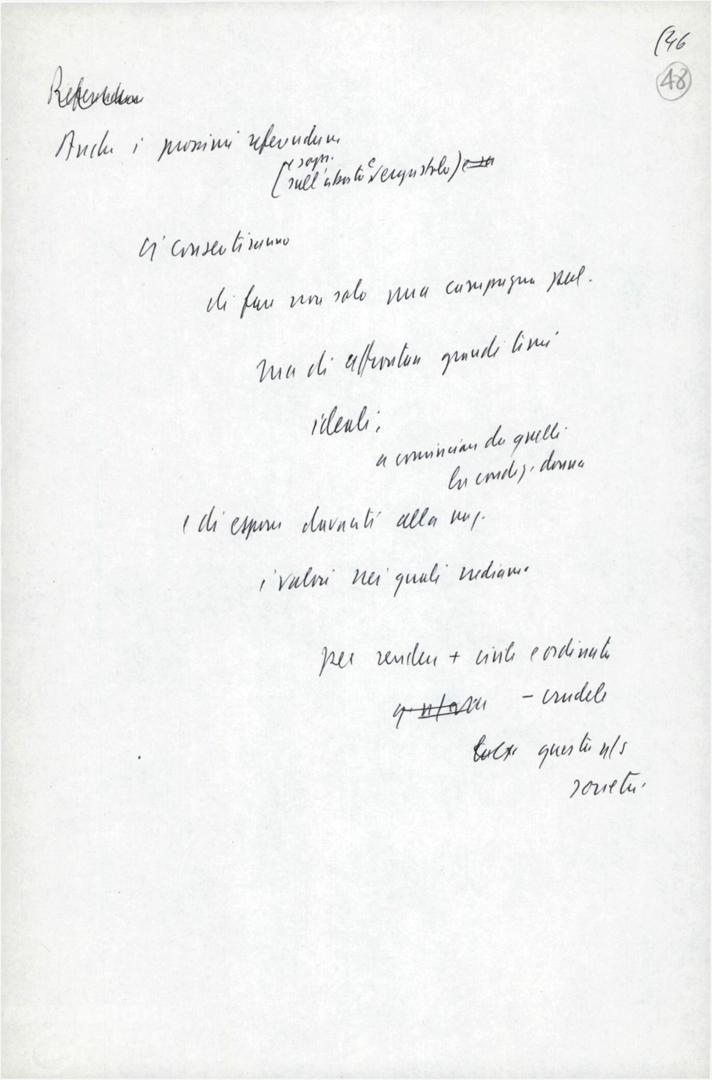 (46
48
Referendum
Anche i prossimi referendum
e sopr.
(sull'aborto e l'ergastolo)
ci consentiranno
di fare non solo una campagna
ma di affrontare grandi temi
ideali;
a cominciare da quelli
condiz. donna
e di esporre davanti alla
i valori nei quali crediamo
per rendere + civile e ordinata
- crudele
questa n/s
società.